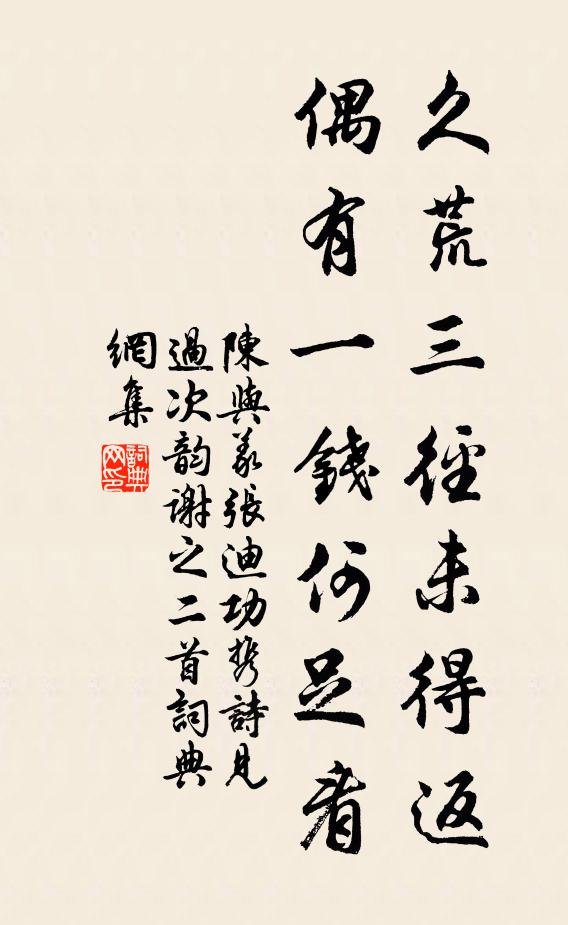 久荒三徑未得返
偶有一錢何足看
陳與義張迪功攜詩見
過次韵謝之二首詞典
網集
詞典
网印